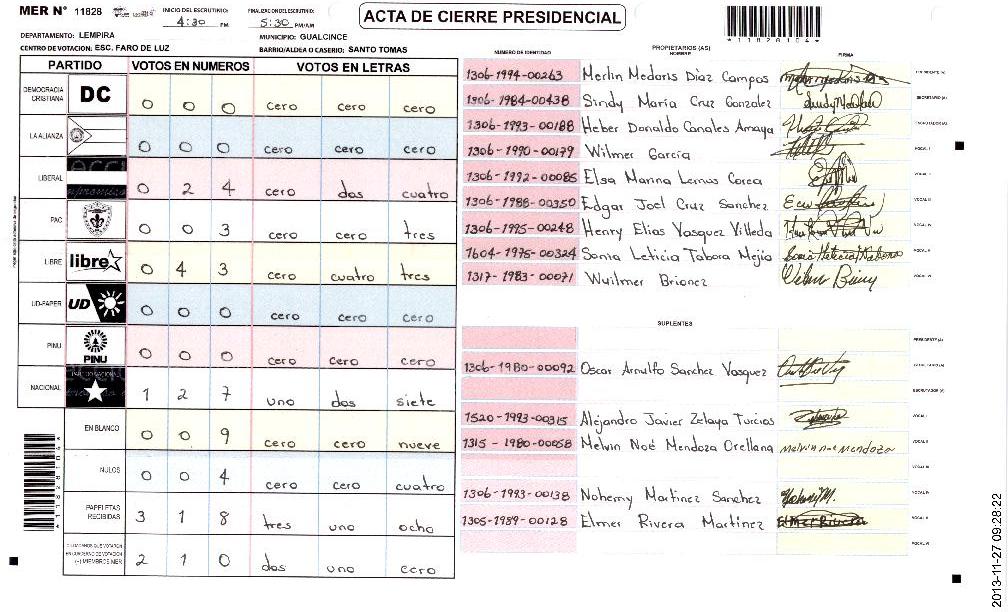 MER N° 11828
INICIO DEL ESCRUTINIO: 4:30 PM
FINALIZACION ESCRUTINIO: 5:30 PM/AM
ACTA DE CIERRE PRESIDENCIAL
*11828104*
DEPARTAMENTO: LEMPIRA
MUNICIPIO: GUALCINCE
CENTRO DE VOTACION: ESC. FARO DE LUZ
BARRIO/ALDEA O CASERIO: SANTO TOMAS
PARTIDO VOTOS EN NUMEROS VOTOS EN LETRAS
DEMOCRACIA CRISTIANA DC 0 0 0 cero cero cero
LA ALIANZA 0 0 0 cero cero cero
LIBERAL 0 2 4 cero dos cuatro
PAC 0 0 3 cero cero tres
LIBRE libre 0 4 3 cero cuatro tres
UD-FAPER UD 0 0 0 cero cero cero
PINU PINU 0 0 0 cero cero cero
NACIONAL 1 2 7 uno dos siete
EN BLANCO 0 0 9 cero cero nueve
NULOS 0 0 4 cero cero cuatro
PAPELETAS RECIBIDAS 3 1 8 tres uno ocho
CIUDADANOS QUE VOTARON EN CUADERNO DE VOTACION (+) MIEMBROS MER 2 1 0 dos uno cero
NUMERO DE IDENTIDAD PROPIETARIOS (AS) NOMBRE FIRMA
1306-1994-00263 Merlin Medaris Diaz Campos PRESIDENTE (A)
1306-1984-00438 Sindy María Cruz Gonzalez SECRETARIO (A)
1306-1993-00188 Heber Donaldo Canales Amaya ESCRUTADOR (A)
1306-1990-00179 Wilmer García VOCAL I
1306-1992-00085 Elsa Marina Lemus Corea VOCAL II
1306-1988-00350 Edgar Joel Cruz Sanchez VOCAL III
1306-1995-00248 Henry Elias Vasquez Villeda VOCAL IV
1604-1975-00324 Sonia Leticia Tabora Mejia VOCAL V
1317-1983-00071 Wuilmer Brionez VOCAL VI
SUPLENTES
PRESIDENTE (A)
1306-1980-00092 Oscar Arnulfo Sanchez Vasquez SECRETARIO (A)
ESCRUTADOR (A)
1520-1993-00315 Alejandro Javier Zelaya Turcios VOCAL I
1315-1980-00058 Melvin Noé Mendoza Orellana melvin noe mendoza VOCAL II
VOCAL III
1306-1993-00138 Nohemy Martinez Sanchez Nohemy M. VOCAL IV
1305-1989-00128 Elmer Rivera Martínez Elmer Rivera VOCAL V
VOCAL VI
2013-11-27 09:28:22